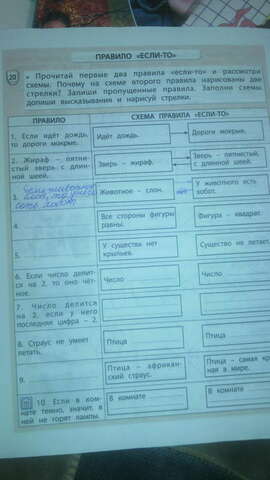 ПРАВИЛО «ЕСЛИ-ТО»
20 • Прочитай первые два правила «если-то» и рассмотри
схемы. Почему на схеме второго правила нарисованы две
стрелки? Запиши пропущенные правила. Заполни схемы,
допиши высказывания и нарисуй стрелки.
ПРАВИЛО СХЕМА ПРАВИЛА «ЕСЛИ-ТО»
1. Если идёт дождь,
то дороги мокрые.
Идёт дождь.
Дороги мокрые.
2. Жираф – пятни-
стый зверь с длин-
ной шеей.
Зверь – жираф.
Зверь – пятнистый,
с длинной шеей.
Животное – слон.
У животного есть
хобот.
4.
Все стороны фигуры
равны.
Фигура – квадрат.
5.
У существа нет
крыльев.
Существо не летает.
6. Если число делит-
ся на 2, то оно чёт-
ное.
Число
Число
7. Число делится
на 2, если у него
последняя цифра – 2.
8. Страус не умеет
летать.
Птица
Птица
9.
Птица – африкан-
ский страус.
Птица – самая
ная в мире.
10. Если в ком-
нате темно, значит, в
ней не горят лампы.
В комнате
В комнате